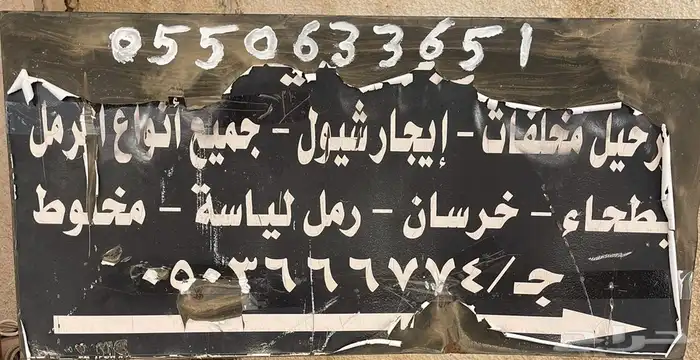 0550633651
ترحيل مخلفات - إيجار شيول - جميع أنواع الرمل
بطحاء - خرسان - رمل لياسة - مخلوط
جـ/ ٠٥٠٣٦٦٦٧٧٤
حراج